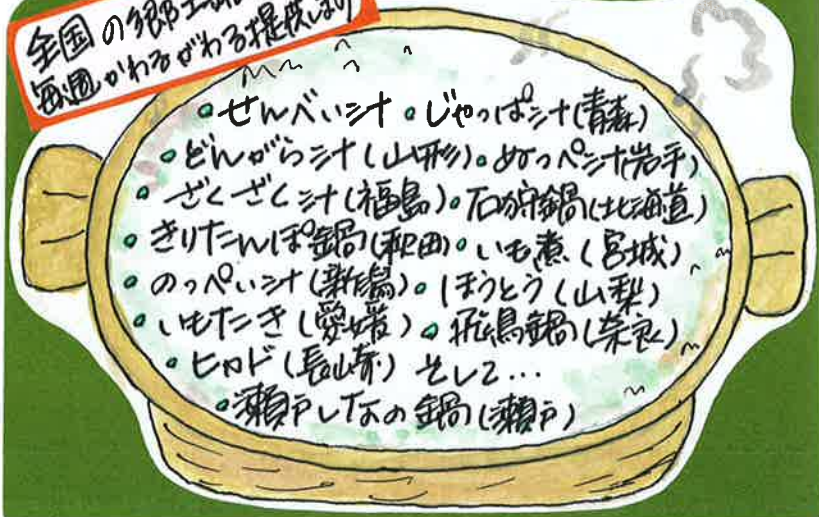 全国の郷土
毎週かわるがわる提供します
・せんべい汁・じゃっぱ汁(青森)
・どんがら汁(山形)・ぬっぺ汁(岩手)
・ざくざく汁(福島)・石狩鍋(北海道)
・きりたんぽ鍋(秋田)・いも煮(宮城)
・のっぺい汁(新潟)・ほうとう(山梨)
・いもたき(愛媛)・飛鳥鍋(奈良)
・ヒカド(長崎) そして…
・瀬戸しなの鍋(瀬戸)